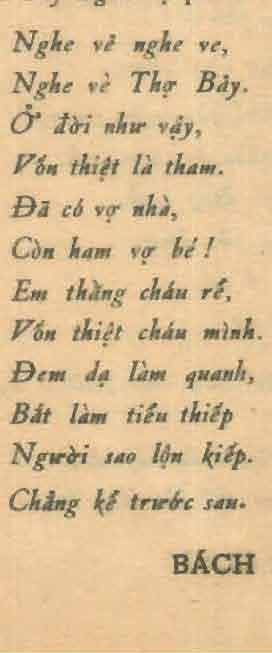 Nghe vẻ nghe ve,
Nghe vè Thợ Bảy.
Ở đời như vậy,
Vốn thiệt là tham.
Đã có vợ nhà,
Còn ham vợ bé !
Em thằng cháu rể,
Vốn thiệt cháu mình.
Đem dạ làm quanh,
Bắt làm tiểu thiếp
Người sao lộn kiếp.
Chẳng kể trước sau.
BÁCH